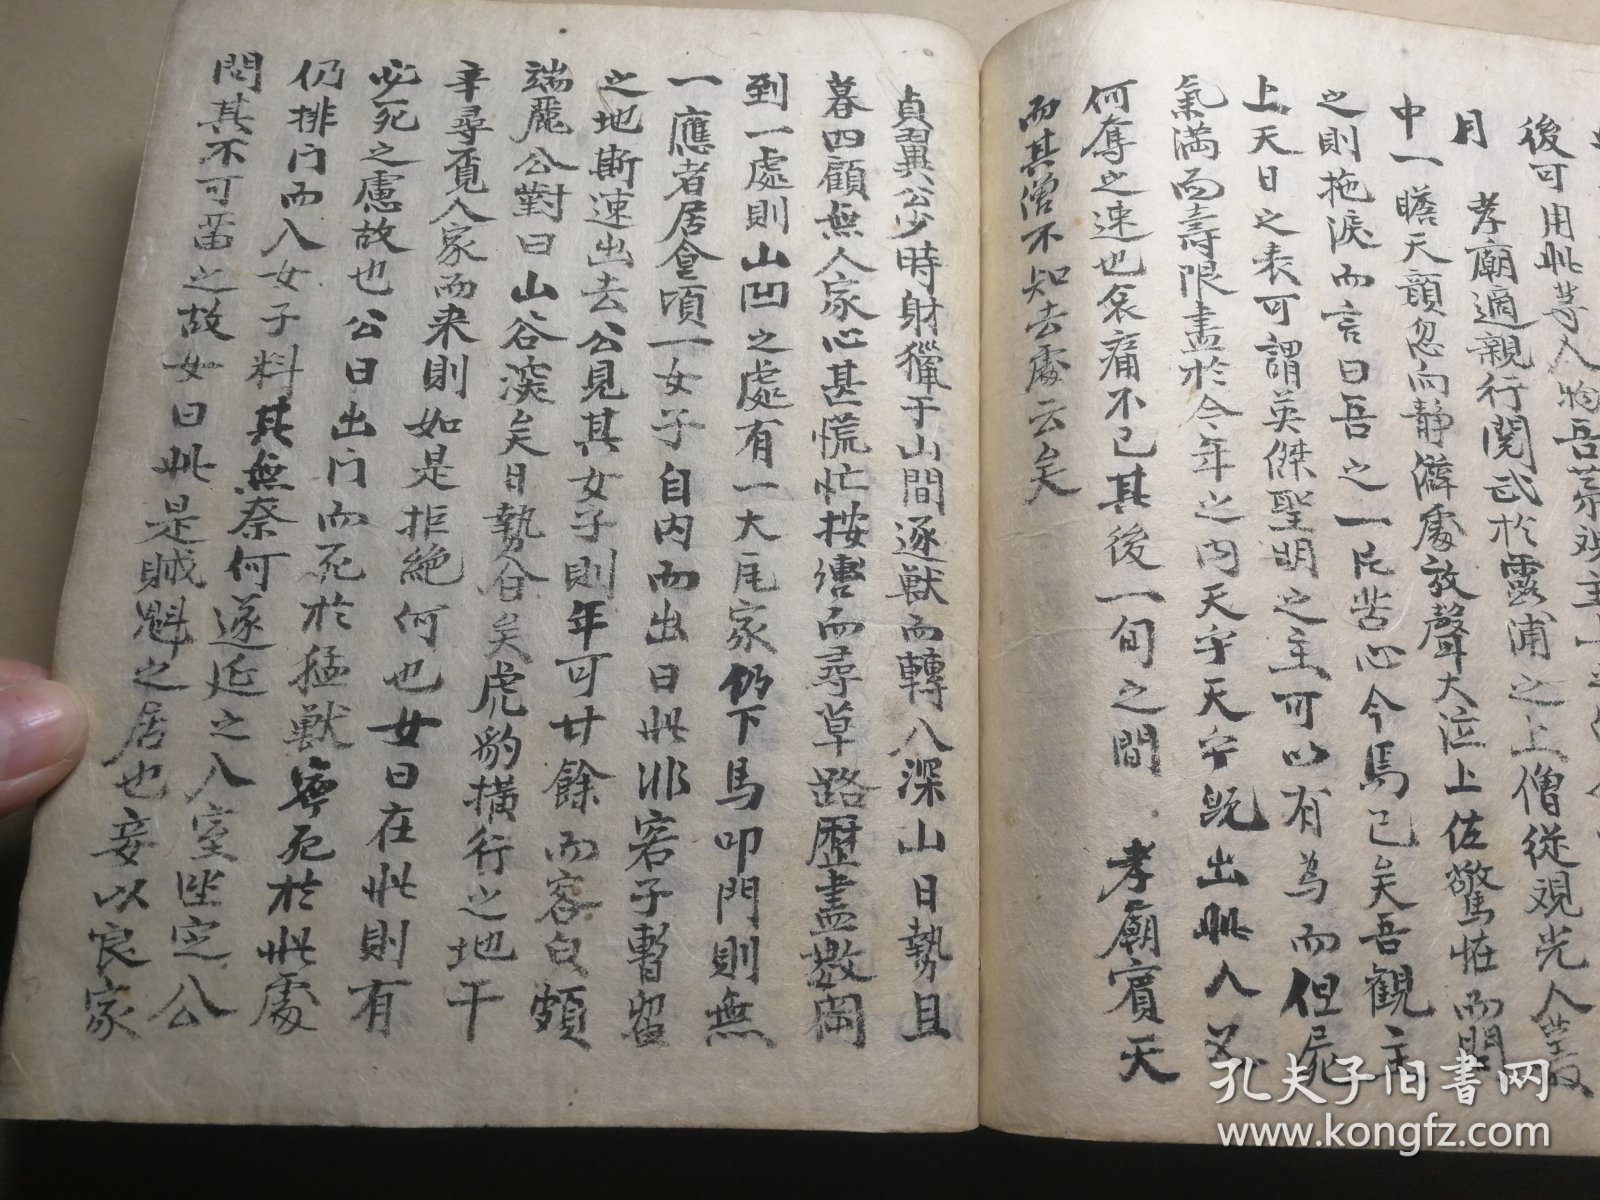 後可用此等人物吾
月　孝廟適親行閱武於露浦之上僧從觀光人叢
中一瞻天顏忽向靜僻處放聲大泣上佐驚怪而問
之則拖淚而言曰吾之一片苦心今焉已矣吾觀主
上天日之表可謂英傑聖明之主可以有為而但屍
氣滿面壽限盡於今年之內天乎天乎既出此人又
何奪之速也哀痛不已其後一旬之間　孝廟賓天
而其僧不知去處云矣
貞翼公少時射獵于山間逐獸而轉入深山日勢且
暮四顧無人家心甚慌忙按轡而尋草路歷盡數岡
到一處則山凹之處有一大瓦家仍下馬叩門則無
一應者居食頃一女子自內而出曰此非客子暫留
之地斯速出去公見其女子則年可廿餘而容皃頗
端麗公對曰山谷深矣日勢昏矣虎豹橫行之地千
辛尋覓人家而來則如是拒絕何也女曰在此則有
必死之慮故也公曰出門而死於猛獸寧死於此處
仍排門而入女子料其無奈何遂延之入室坐定公
問其不可留之故女曰此是賊魁之居也妾以良家
孔夫子旧书网
www.kongfz.com